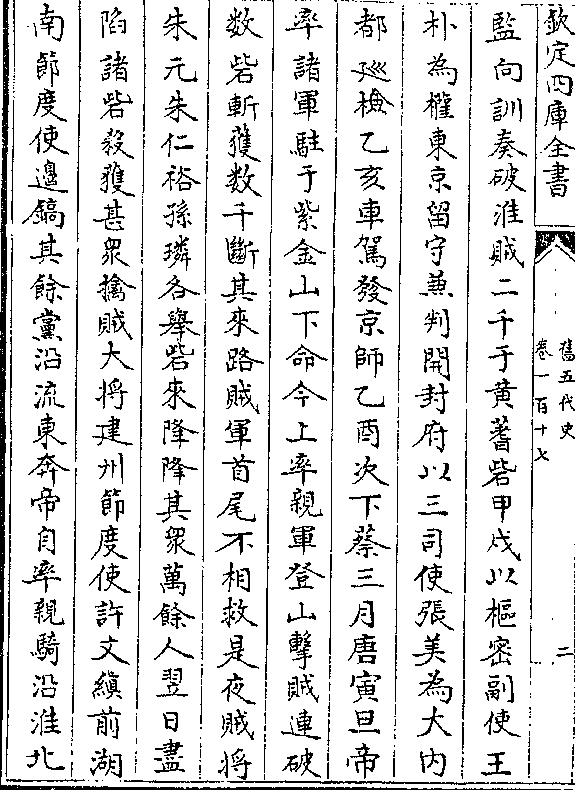 欽定四庫全書
舊五代史
卷一百十七
二
監向訓奏破淮賊二千于黄蓍砦甲戌以樞密副使王
朴為權東京留守兼判開封府以三司使張美為大内
都廵檢乙亥車駕發京師乙酉次下蔡三月庚寅旦帝
率諸軍駐于紫金山下命今上率親軍登山擊賊連破
数砦斬獲数千斷其來路賊軍首尾不相救是夜賊將
朱元朱仁裕孫璘各舉砦來降降其衆萬餘人翌日盡
陷諸砦殺獲甚衆擒賊大將建州節度使許文縝前湖
南節度使邊鎬其餘黨沿流東奔帝自率親騎沿淮北